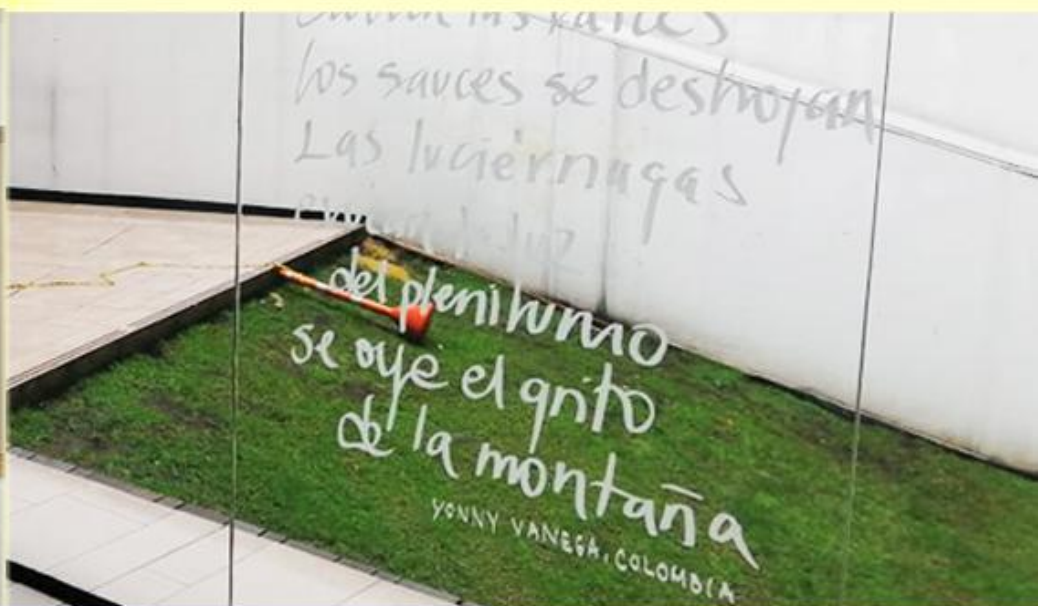 los sauces se deshojan
Las luciérnagas
luz
del plenilunio
se oye el grito
de la montaña
YONNY VANEGA, COLOMBIA